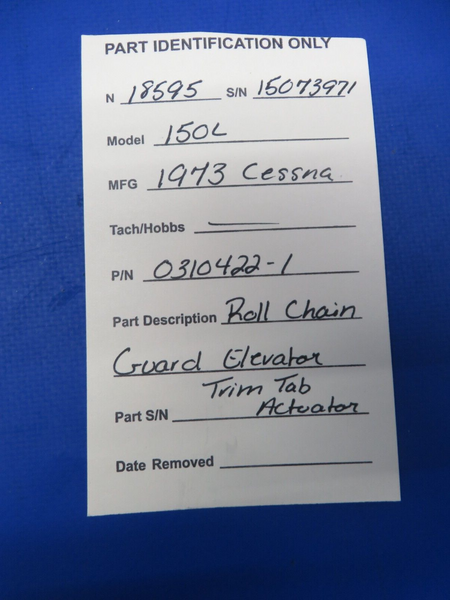 PART IDENTIFICATION ONLY
N 18595 S/N 15073971
Model 150L
MFG 1973 Cessna
Tach/Hobbs
P/N 0310422-1
Part Description Roll Chain
Guard Elevator
Trim Tab
Part S/N Actuator
Date Removed